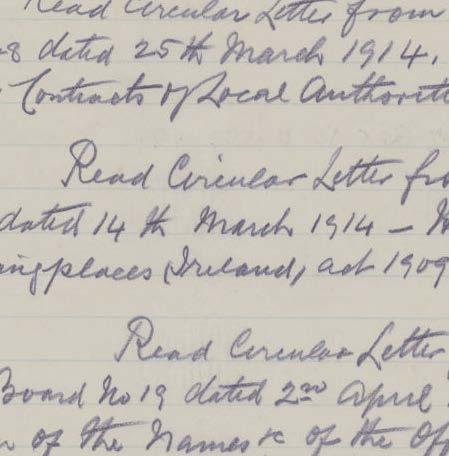 Read Circular Letter from
dated 25th March 1914.
Contracts of Local Authorit
Read Circular Letter fro
dated 14th March 1914 –
ingplaces (Ireland) act 1909
Read Circular Letter
Board No 19 dated 2nd April
of the Names &c of the Off